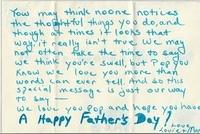 You may think noone notices
the thoughtful things you do, and
though at times it looks that
way, it really isn't true. We may
not often take the time to say
we think you're swell, but Pop you
Know we love you more than
words can ever tell. And so this
special message is just our way
to say—
we love you pop and hope you have
A Happy Father's Day!
Love